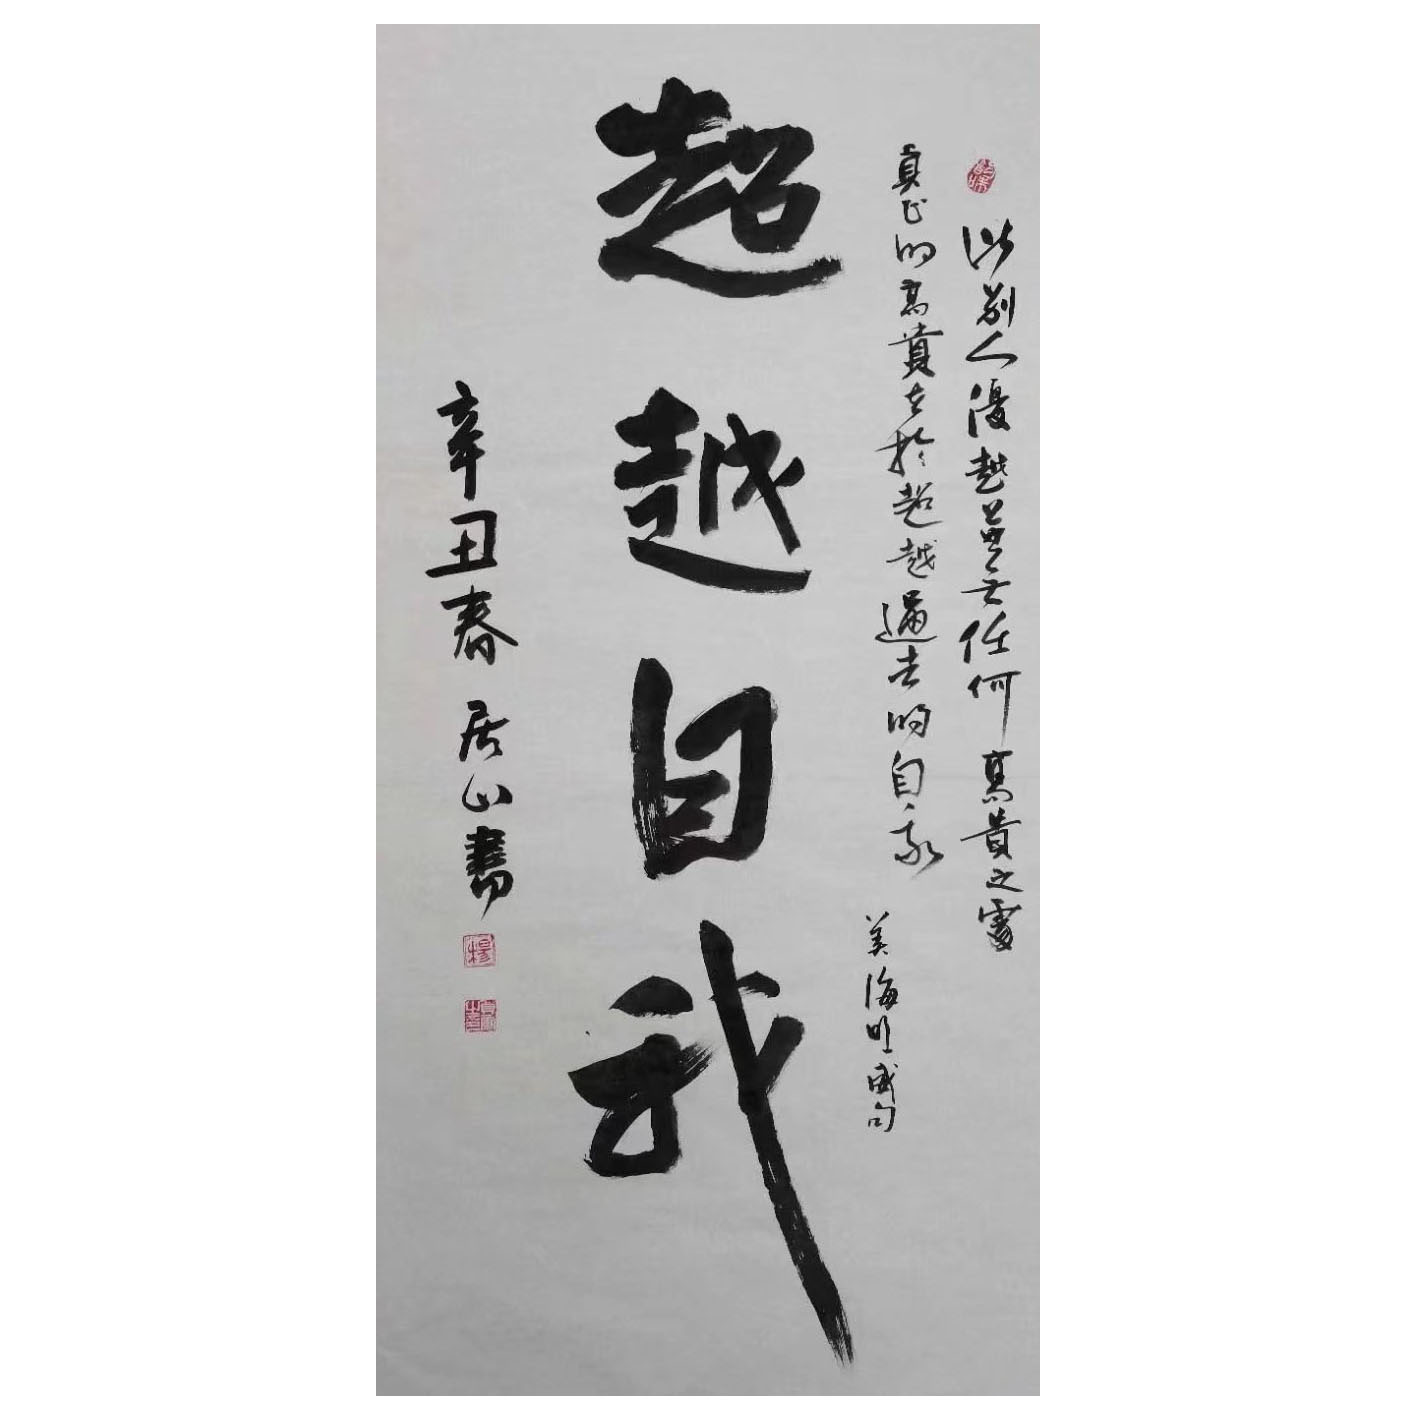 比别人優越並无任何高貴之處
真正的高貴在於超越過去的自我
美海明威句
超越自我
辛丑春居山書
楊